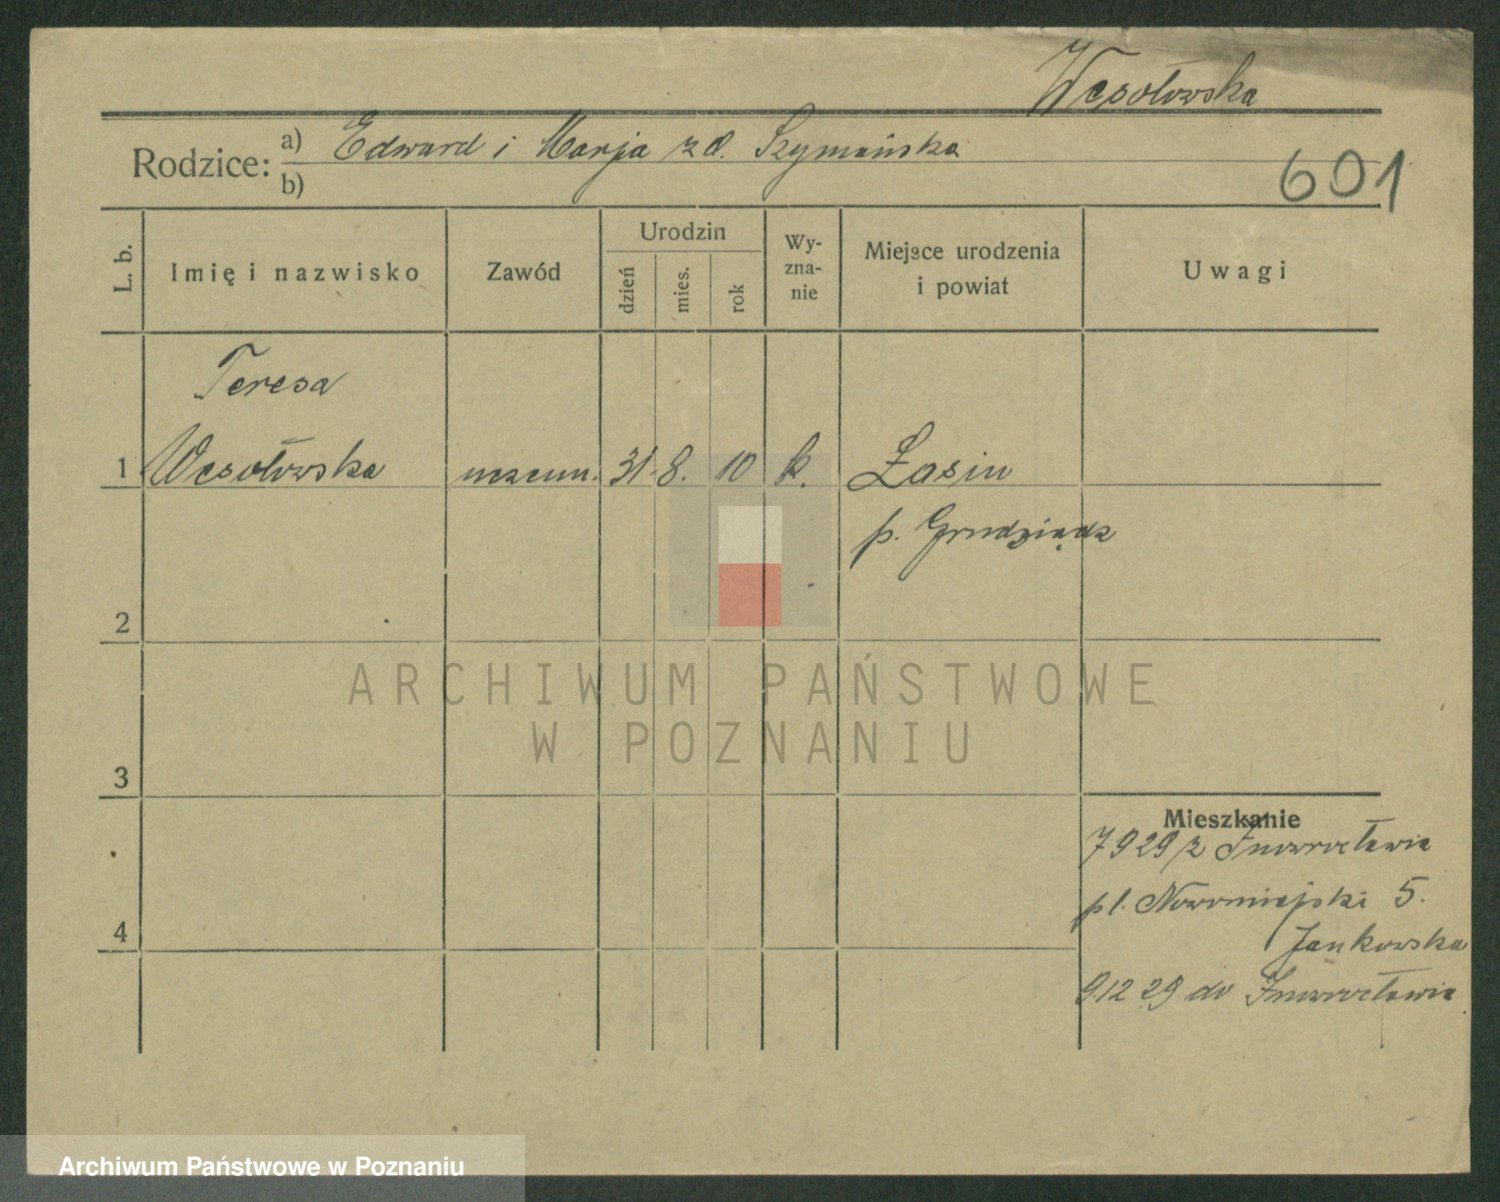 Wesołowska
Rodzice: a) Edward i Marja zd. Szymańska
b)
601
L. b.
Imię i nazwisko
Zawód
Urodzin
dzień
mies.
rok
Wy-
zna-
nie
Miejsce urodzenia
i powiat
Uwagi
Teresa
1 Wesołowska uczenn. 31. 8. 10 k. Łasin
p. Grudziądz
2
ARCHIWUM PAŃSTWOWE
W POZNANIU
3
Mieszkanie
7 9 29 z Inowrocławia
pl. Nowomiejski 5.
4
Jankowska
9.12 29 do Inowrocławia
Archiwum Państwowe w Poznaniu